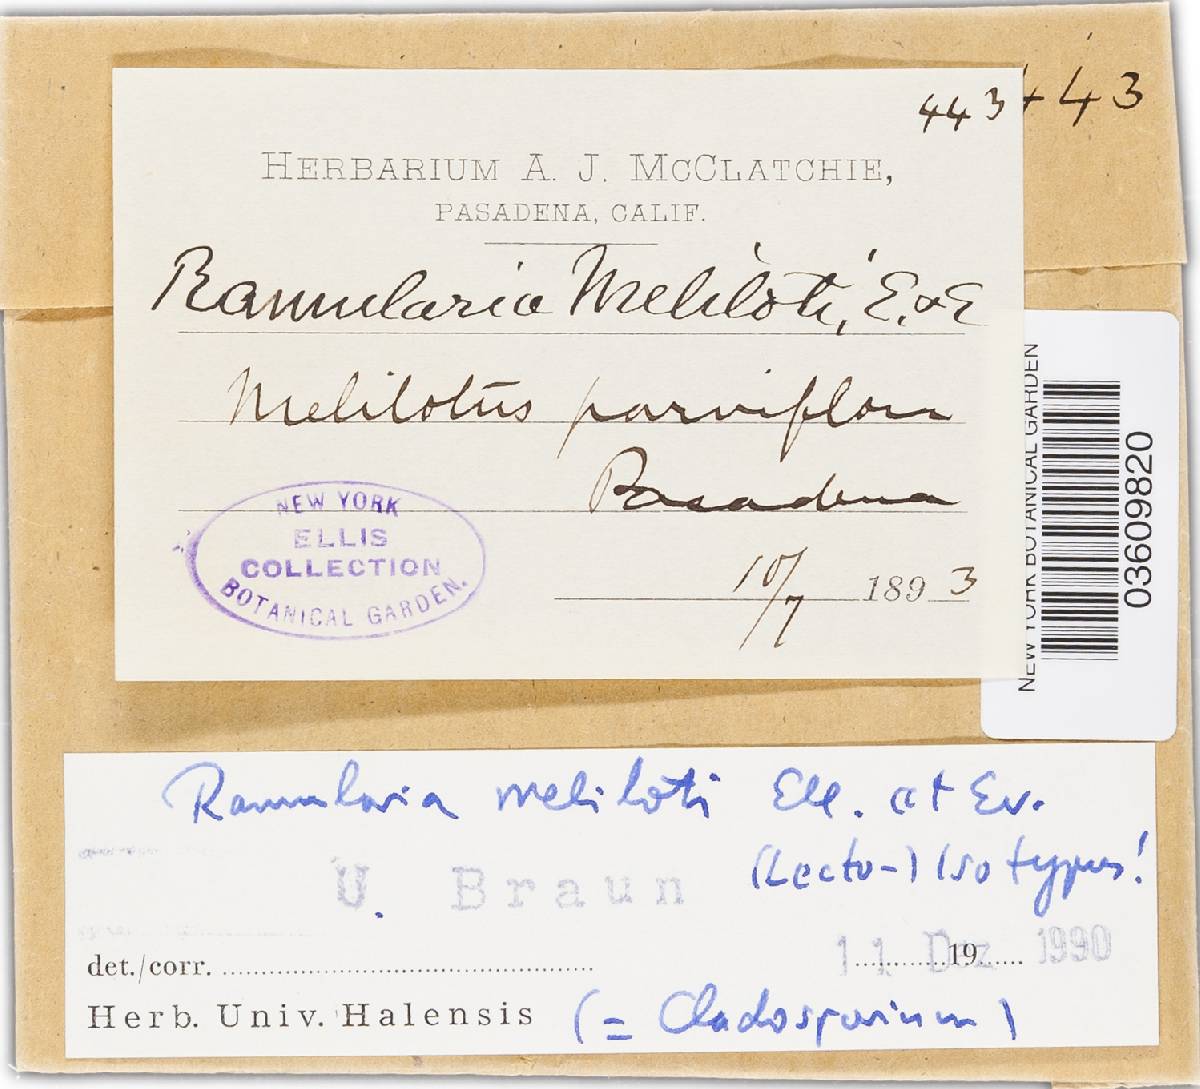 443 443
HERBARIUM A. J. MCCLATCHIE,
PASADENA, CALIF.
Ramularia Meliloti, E. & E
Melilotus parviflora
Pasadena
10/7 1893
NEW YORK
ELLIS
COLLECTION
BOTANICAL GARDEN.
NEW YORK BOTANICAL GARDEN
03609820
Ramularia meliloti Ell. et Ev.
(Lecto-) Isotypus!
U. Braun
det./corr. 11 Dez 19 1990
Herb. Univ. Halensis (= Cladosporium)